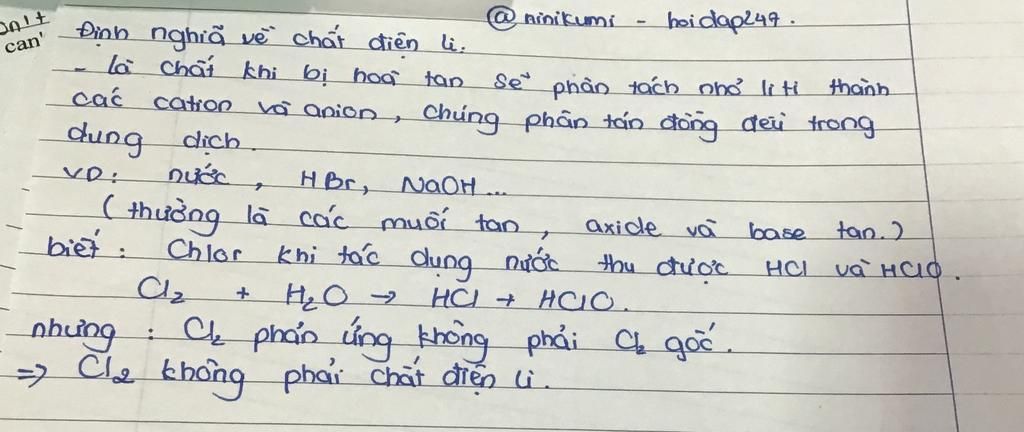 @ninikumi - hoidap247.
can'
Định nghĩa về chất điện li.
- là chất khi bị hoà tan sẽ phân tách nhỏ li ti thành
các cation và anion, chúng phân tán đồng đều trong
dung dịch.
VD: nước, HBr, NaOH...
(thường là các muối tan, axide và base tan.)
biết: Chlor khi tác dụng nước thu được HCl và HClO.
Cl₂ + H₂O → HCl + HClO.
nhưng: Cl₂ phản ứng không phải Cl₂ gốc.
=> Cl₂ không phải chất điện li.